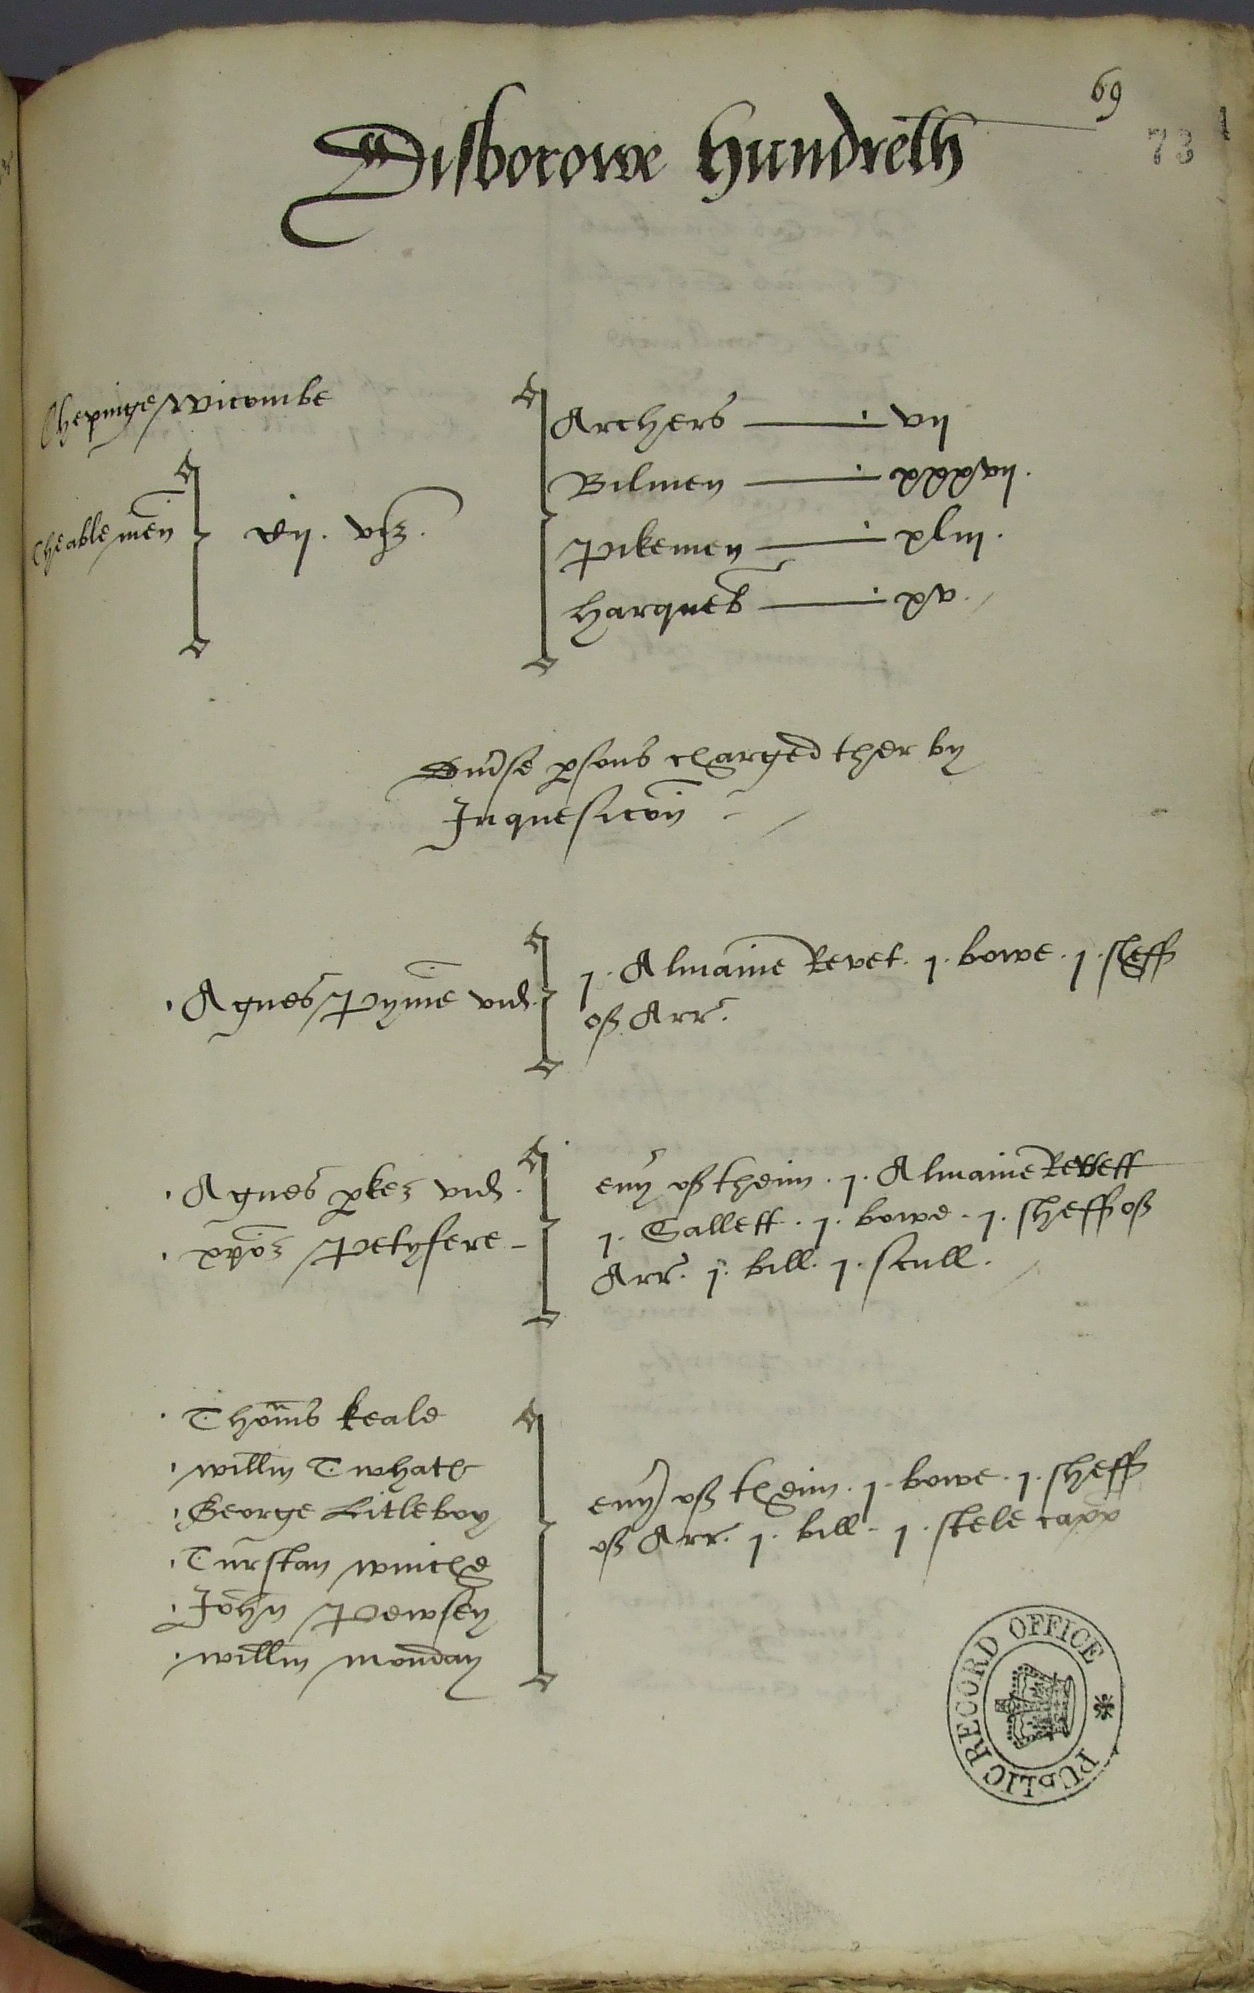 69
73
Disborowe Hundreth
Chepinge Wicombe
Archers — vij
Bilmen — xxxvij.
The able men cij. viz.
Pikemen — xliij.
Harqueb — xv.
Div'se p'sons charged ther by
Inquesicōn
Agnes Pyme vid. j. Almaine Revet. j. bowe. j. sheff
of Arr.
Agnes p'kes vid.
Petyfere
eu'y of theim. j. Almaine Revett
j. Sallett. j. bowe. j. sheff of
Arr. j. bill. j. scull.
Thoms Keale
Willm Twhats
George Litleboy
Turstan Winche
John Pewsey
Willm Monday
eu'y of theim. j. bowe. j. sheff
of Arr. j. bill. j. stele capp
PUBLIC RECORD OFFICE